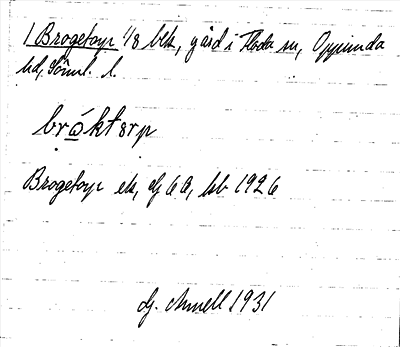 1 Brogetorp 1/8 blk, gård i Floda sn, Oppunda
hd, Söml. l.
brǻktɘrp
Brogetorp ek, dj 60, kb 1926
dj. Amell 1931